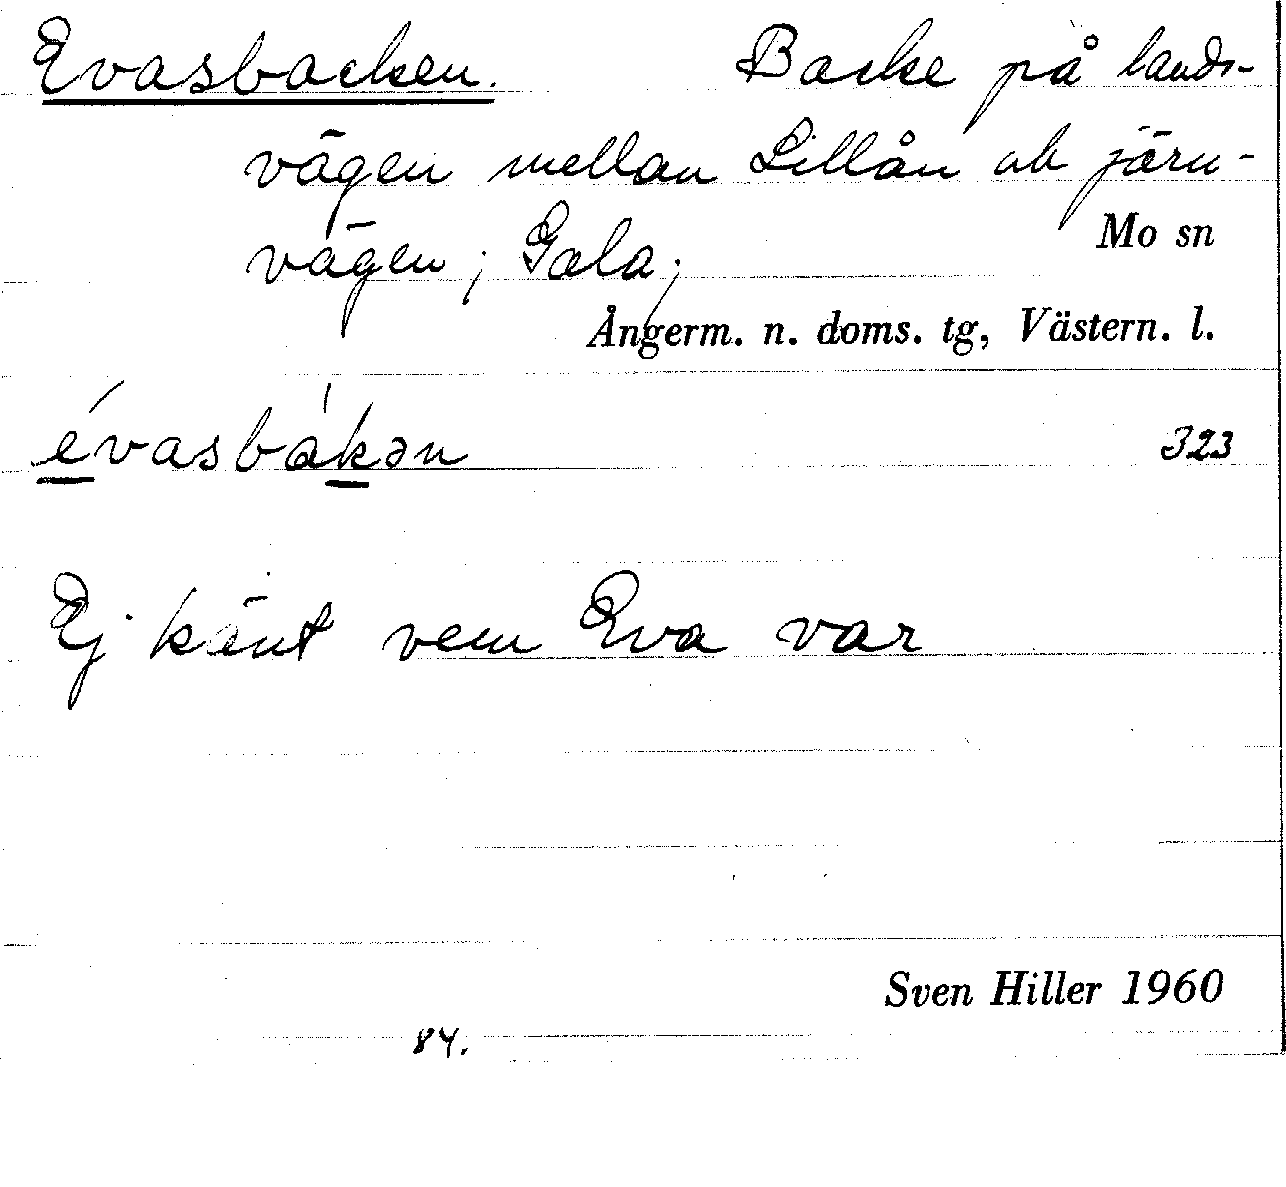 Evasbacken. Backe på lands-
vägen mellan Lillån ok järn-
vägen; Gala;
Mo sn
Ångerm. n. doms. tg, Västern. l.
évasbákən 323
Ej känt vem Eva var
Sven Hiller 1960
84.